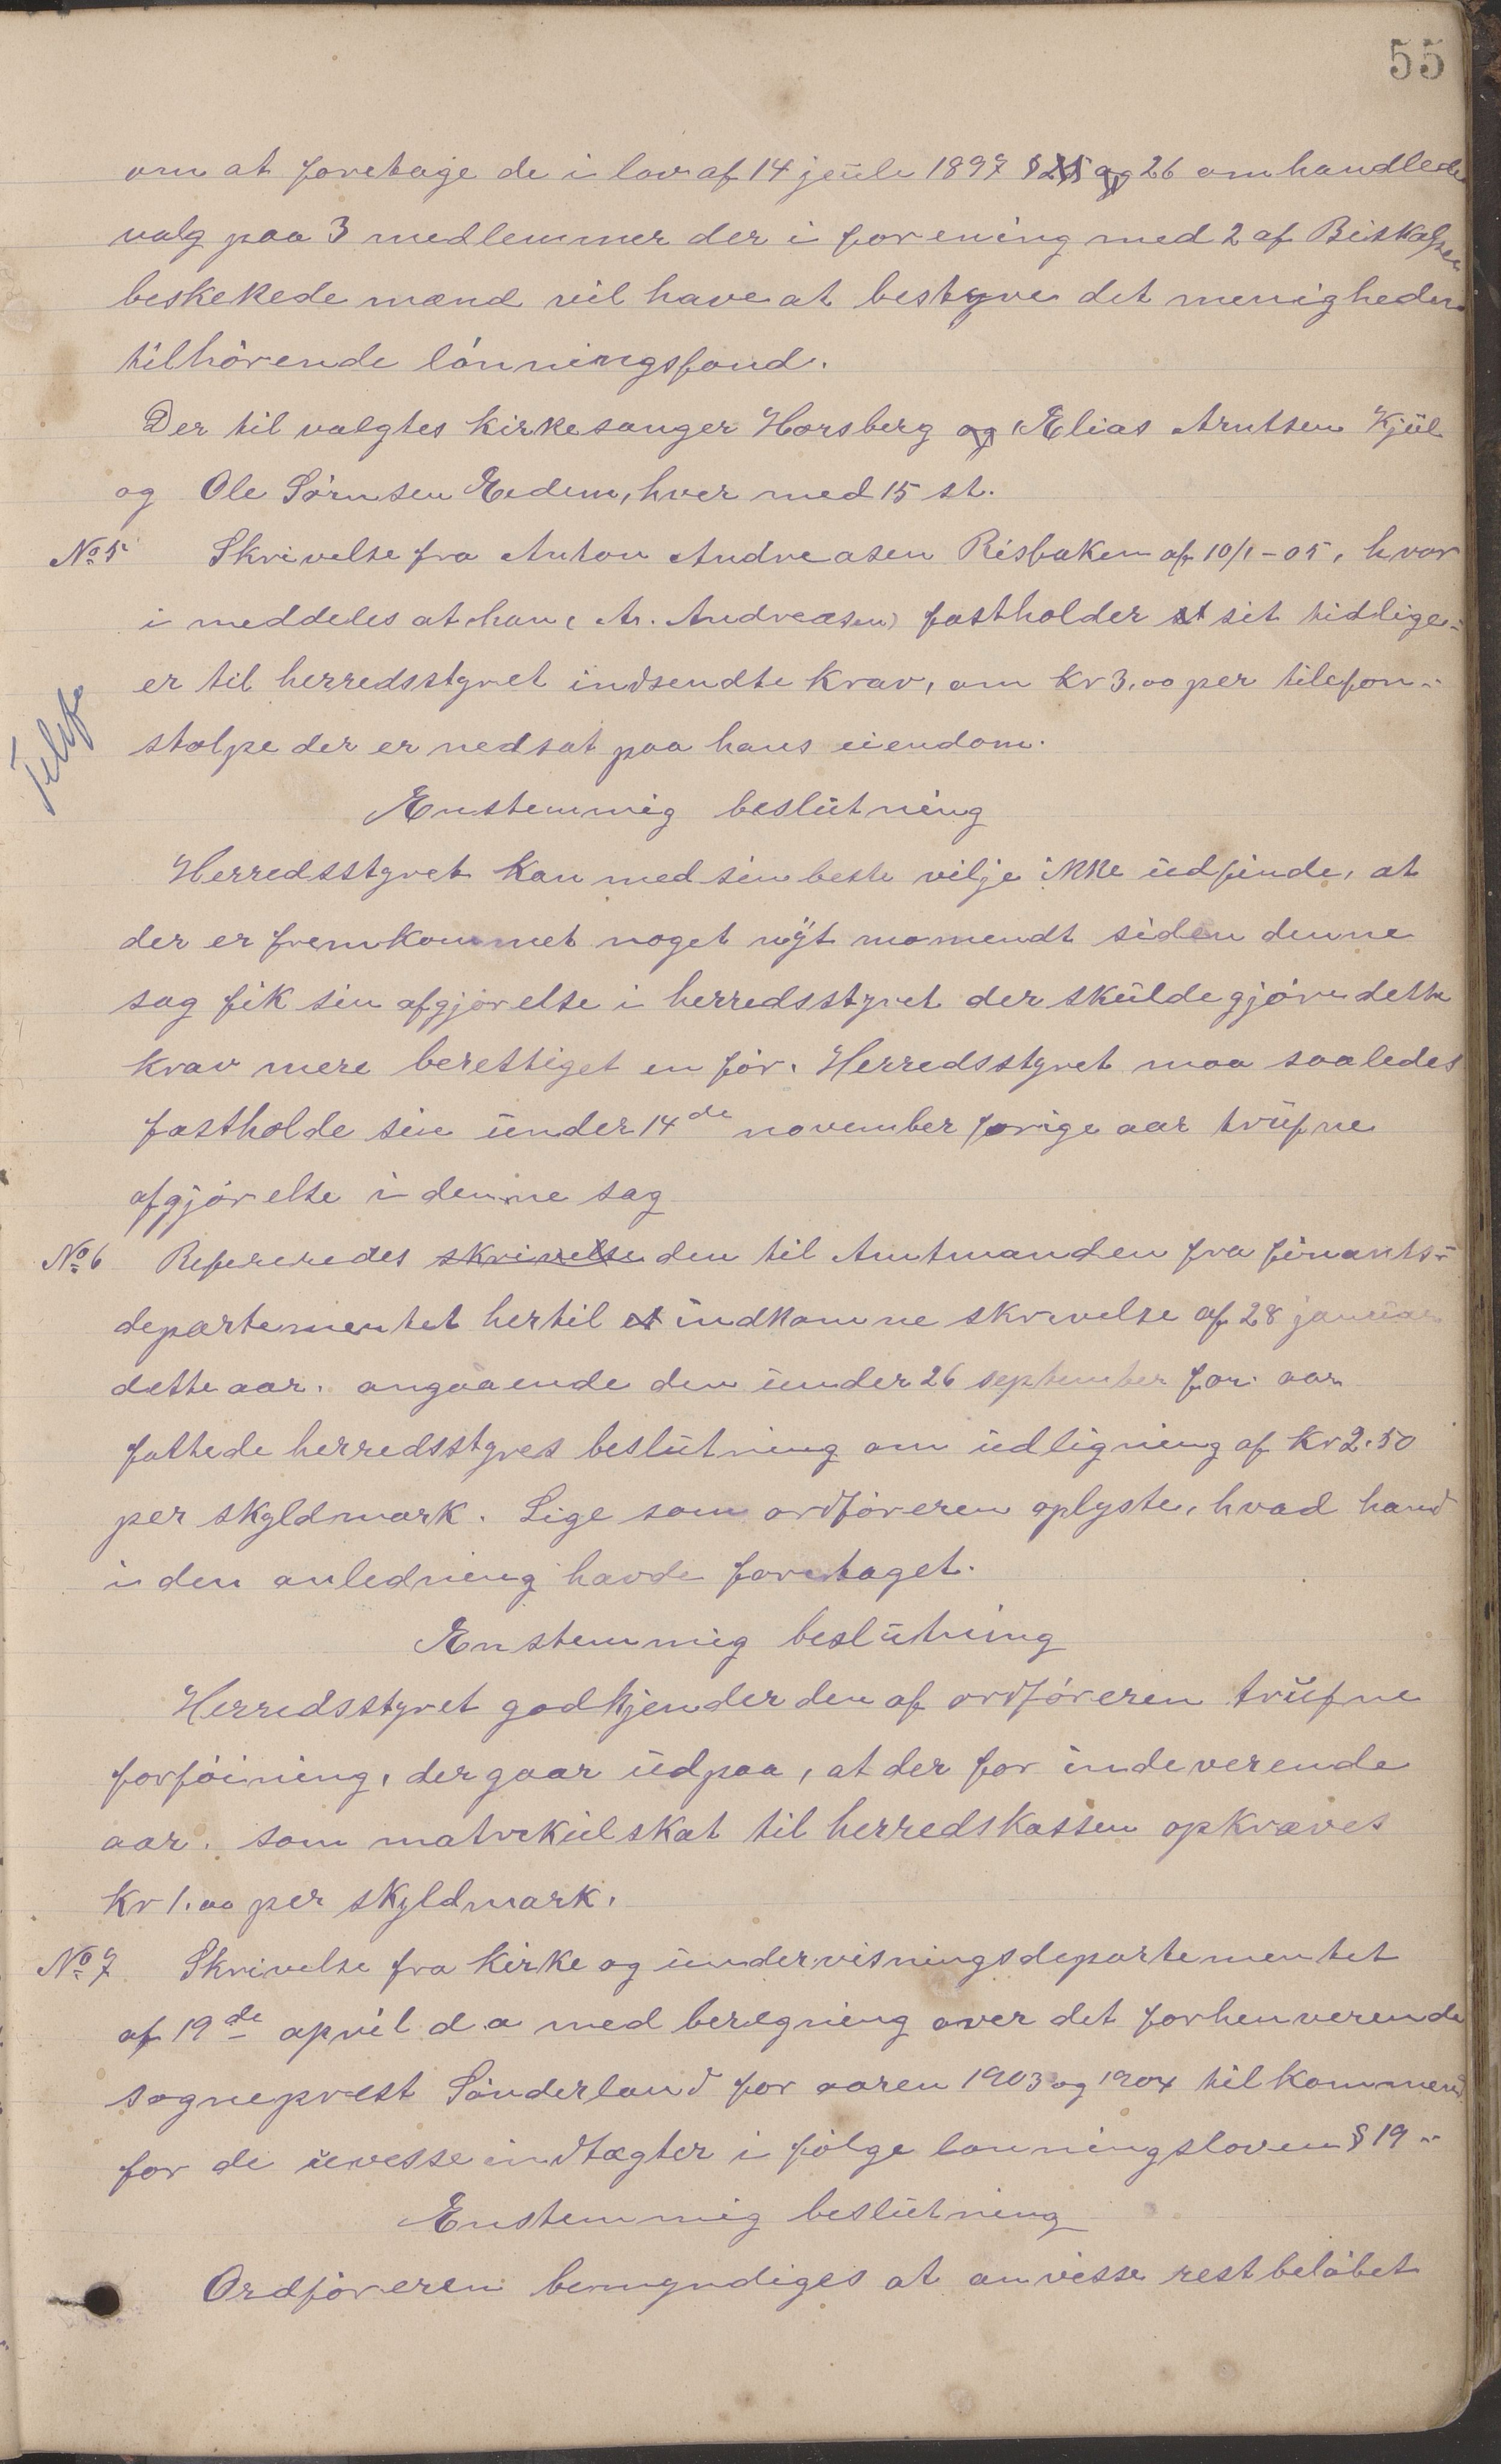 55
om at foretage de i lov af 14 juli 1897 § 25 og 26 omhandlede
valg paa 3 medlemmer der i forening med 2 af Biskoppen
beskekede mænd vil have at bestyre det menigheden
tilhörende lönningsfond.
Der til valgtes Kirkesanger Horsberg og Elias Arntsen Kjül
og Ole Sörnsen Eedem, hver med 15 st.
No 5 Skrivelse fra Anton Andreasen Risbakken af 10/1-05, hvor
i meddeles at han (An. Andreasen) fastholder at sit tidlige=
er til herredsstyret indsendte Krav, om Kr 3,00 per tilefon=
stolpe der er nedsat paa hans eiendom.
Telef
Enstemmig beslutning
Herredsstyret Kan med sin beste vilje ikke udfinde, at
der er fremkommet noget nyt momendt siden denne
sag fik sin afgjörelse i herredsstyret der skulde gjöre dette
Krav mere berettiget en för. Herredsstyret maa saaledes
fastholde sin under 14de november forige aar trufne
afgjörelse i denne sag
No 6 Refereredes skrivelse den til Amtmanden fra finants=
departementet hertil et indkomne skrivelse af 28 januar
dette aar. angaaende den under 26 september for. aar
fattede herredsstyres beslutning om udligning af Kr 2.50
per skyldmark. Lige som ordföreren oplyste, hvad hand
i den anledning havde foretaget.
Enstemmig beslutning
Herredsstyret godkjender den af ordföreren trufne
forföining, der gaar ud paa, at der for indeverende
aar. som matrikulskat til herredskassen opkræves
Kr 1.00 per skyldmark.
No 7 Skrivelse fra Kirke og undervisningsdepartementet
af 19de april d a med beregning over det forhenverende
sogneprest Sönderland for aaren 1903 og 1904 tilkommend
for de uvesse indtægter i følge lønningsloven § 19 "
Enstemmig beslutning
Ordföreren bemyndiges at anvisse restbelöbet